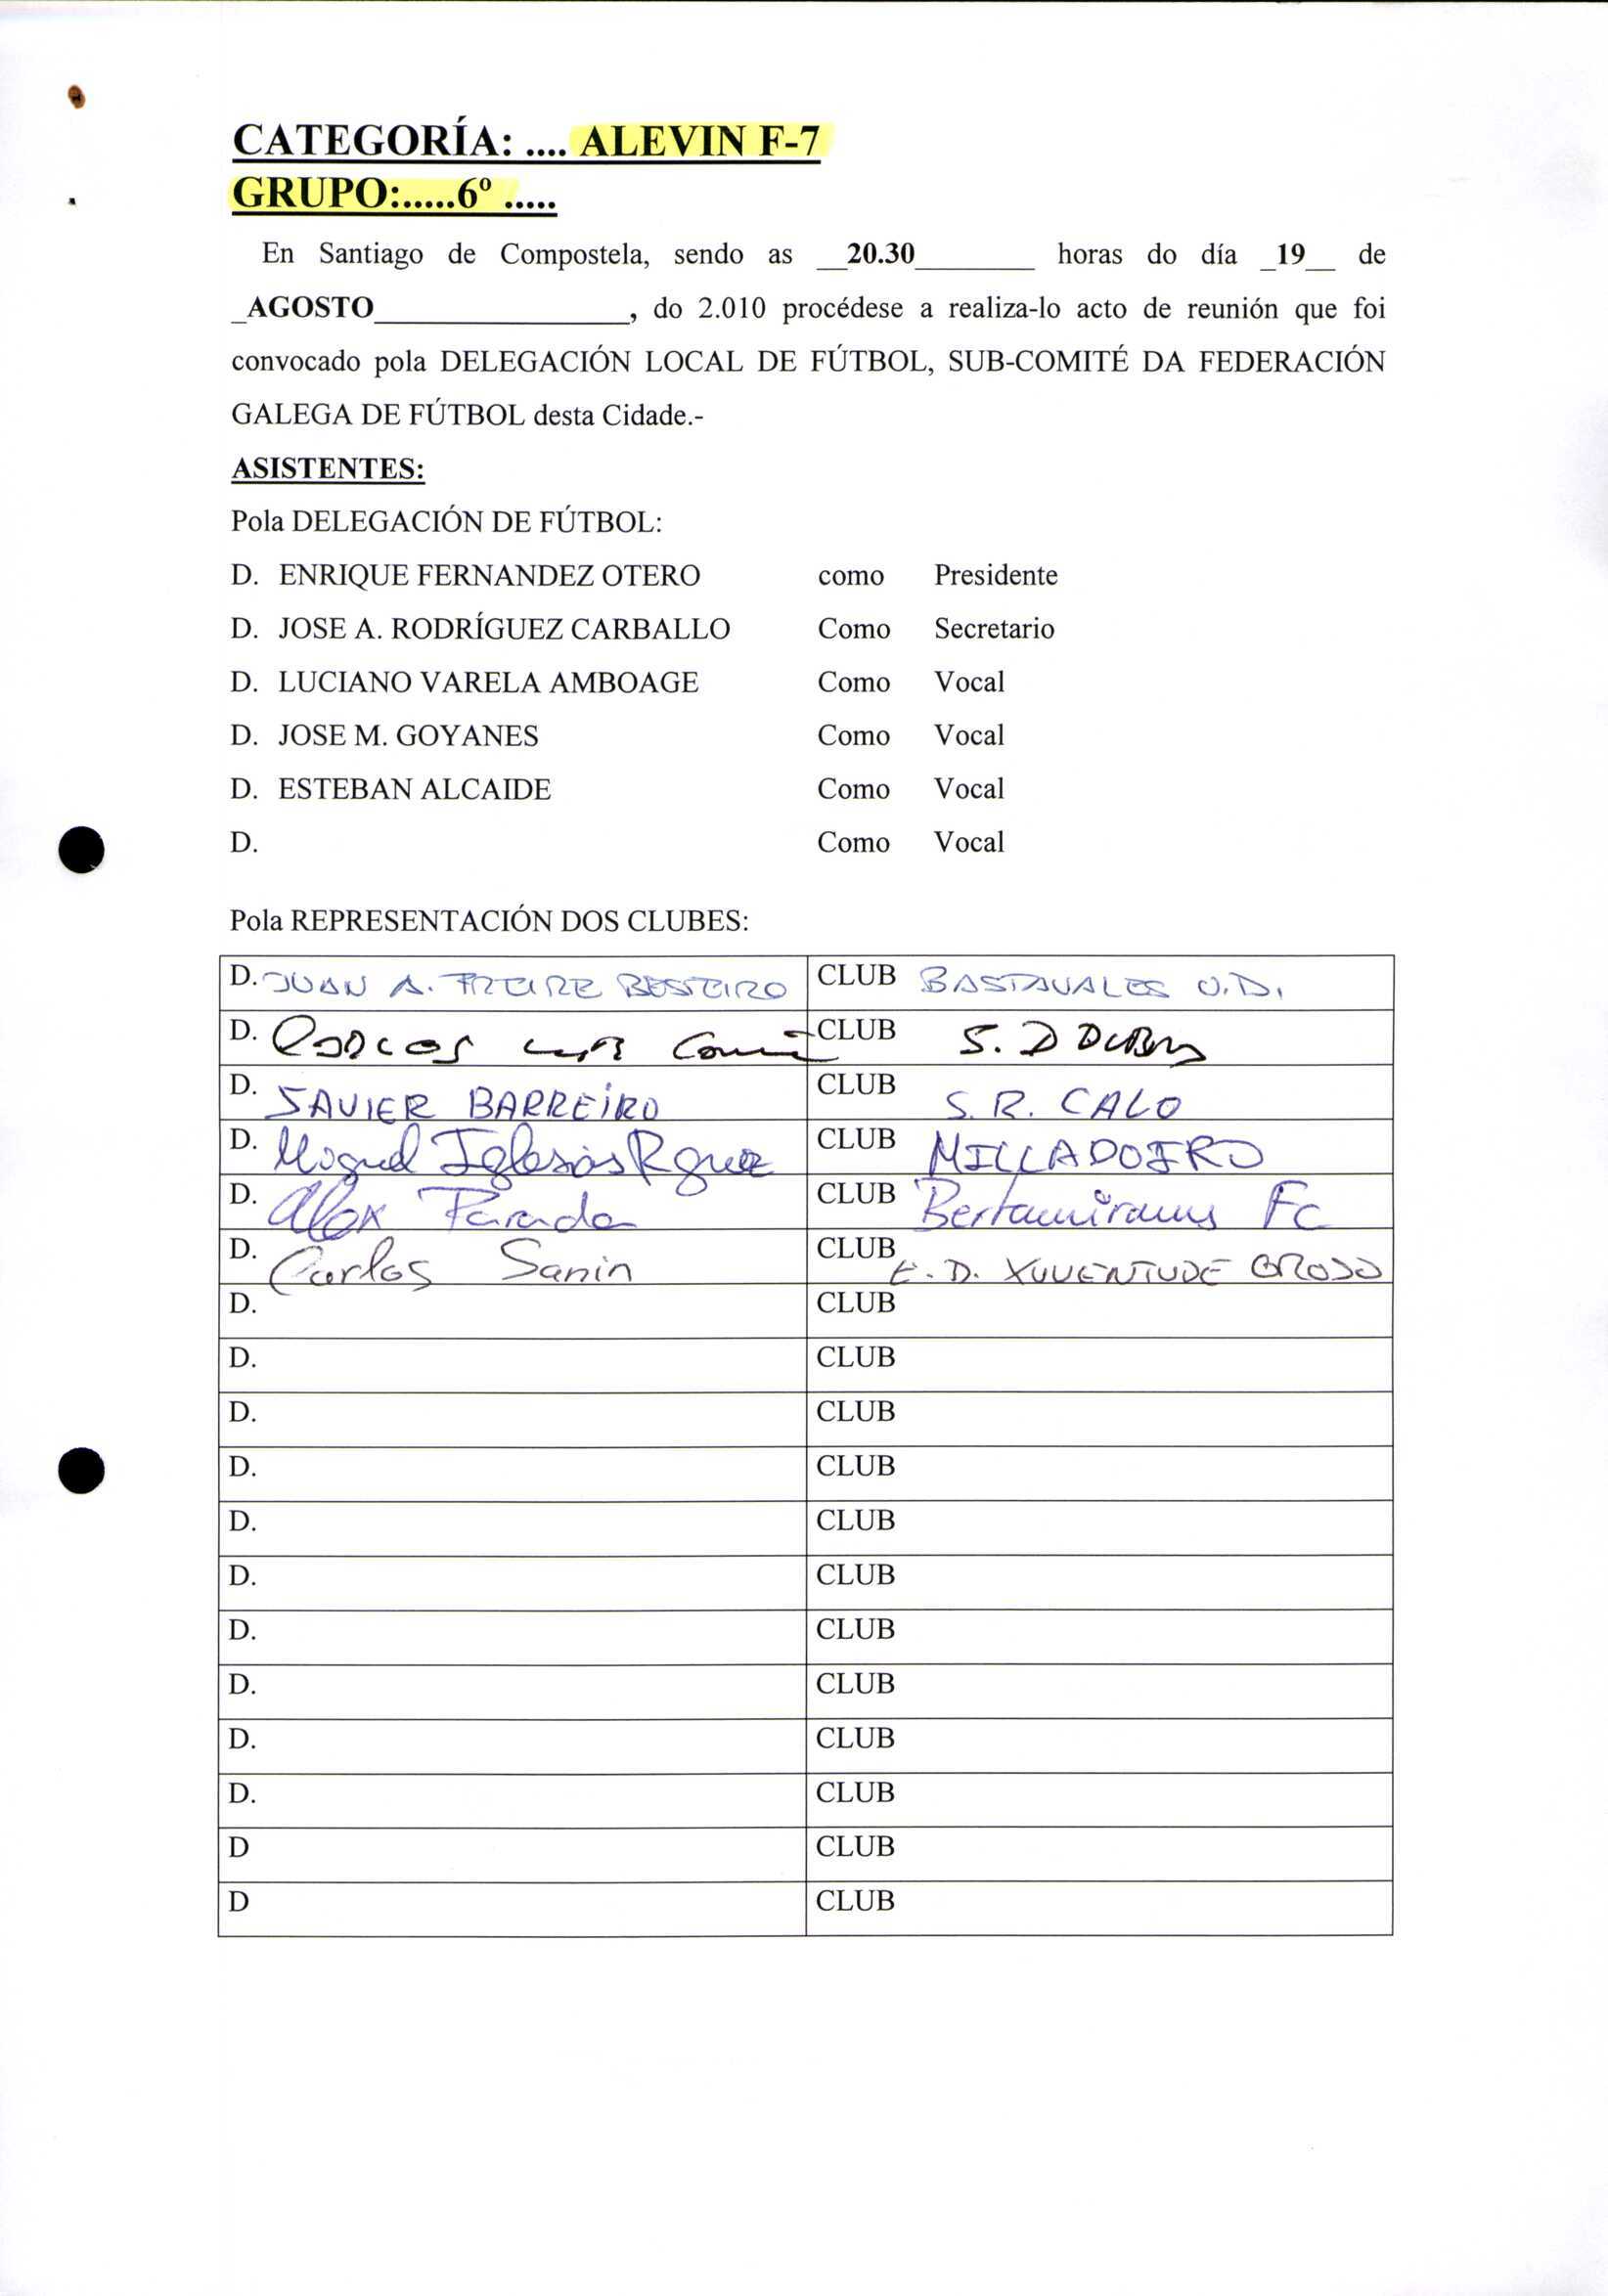 CATEGORÍA: .... ALEVIN F-7
GRUPO:.....6º .....
En Santiago de Compostela, sendo as __20.30________ horas do día _19__ de
_AGOSTO_________________, do 2.010 procédese a realiza-lo acto de reunión que foi
convocado pola DELEGACIÓN LOCAL DE FÚTBOL, SUB-COMITÉ DA FEDERACIÓN
GALEGA DE FÚTBOL desta Cidade.-
ASISTENTES:
Pola DELEGACIÓN DE FÚTBOL:
D. ENRIQUE FERNANDEZ OTERO como Presidente
D. JOSE A. RODRÍGUEZ CARBALLO Como Secretario
D. LUCIANO VARELA AMBOAGE Como Vocal
D. JOSE M. GOYANES Como Vocal
D. ESTEBAN ALCAIDE Como Vocal
D. Como Vocal
Pola REPRESENTACIÓN DOS CLUBES:
D. JUAN A. FREIRE BESTEIRO CLUB BASTAVALES U.D.
D. CLUB S. D
D. JAVIER BARREIRO CLUB S. R. CALO
D. Miguel Iglesias Rguez CLUB MILLADOIRO
D. Alex Parada CLUB Bertamirans FC
D. Carlos Sanin CLUB E. D. XUVENTUDE OROSO
D. CLUB
D. CLUB
D. CLUB
D. CLUB
D. CLUB
D. CLUB
D. CLUB
D. CLUB
D. CLUB
D. CLUB
D CLUB
D CLUB